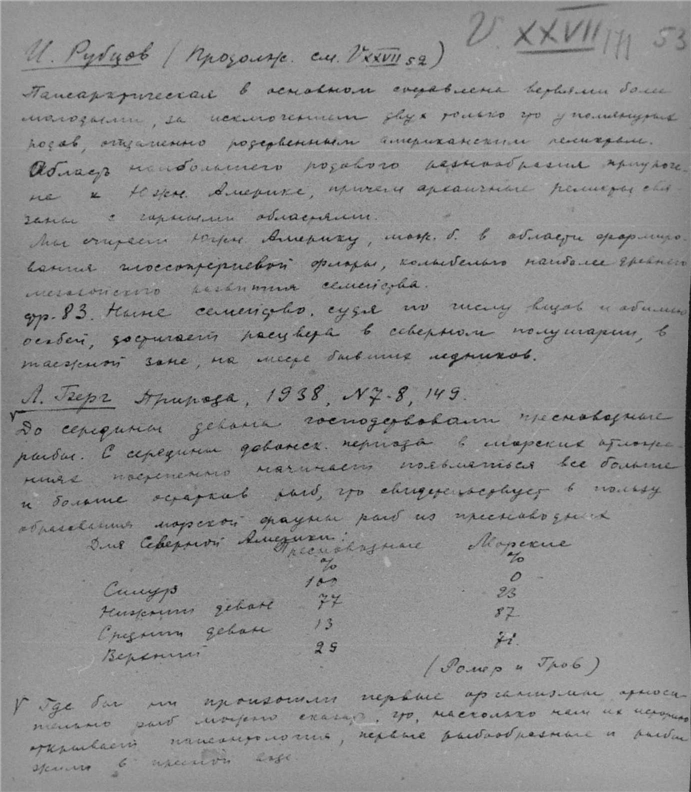 V. XXVII 171 53
И. Рубцов (Продолж. см. V XXVII 52)
Палеарктическая в основном составлена ветвями более
молодыми, за исключением двух только что упомянутых
родов, отдаленно родственным американским реликтам.
Область наибольшего родового разнообразия приуроче-
на к Южн. Америке, причем архаичные реликты свя-
заны с горными областями.
Мы считаем Южн. Америку, мож. б. в области формиро-
вания глоссоптериевой флоры, колыбелью наиболее древнего
мезозойского развития семейства.
стр. 83. Ныне семейство, судя по числу видов и обилию
особей, достигает расцвета в северном полушарии, в
таежной зоне, на месте бывших ледников.
Л. Берг Природа, 1938, N 7-8, 149.
V До середины девона господствовали пресноводные
рыбы. С середины девонск. периода в морских отложе-
ниях постепенно начинает появляться все больше
и больше остатков рыб, что свидетельствует в пользу
образования морской фауны рыб из пресноводных
Для Северной Америки:
Пресноводные Морские
% %
Силур 100 0
Нижний девон 77 23
Средний девон 13 87
Верхний 29 71
(Ромер и Гров)
V Где бы ни произошли первые организмы, относи-
тельно рыб можно сказать, что, насколько нам их историю
открывает палеонтология, первые рыбообразные и рыбы
жили в пресной воде.